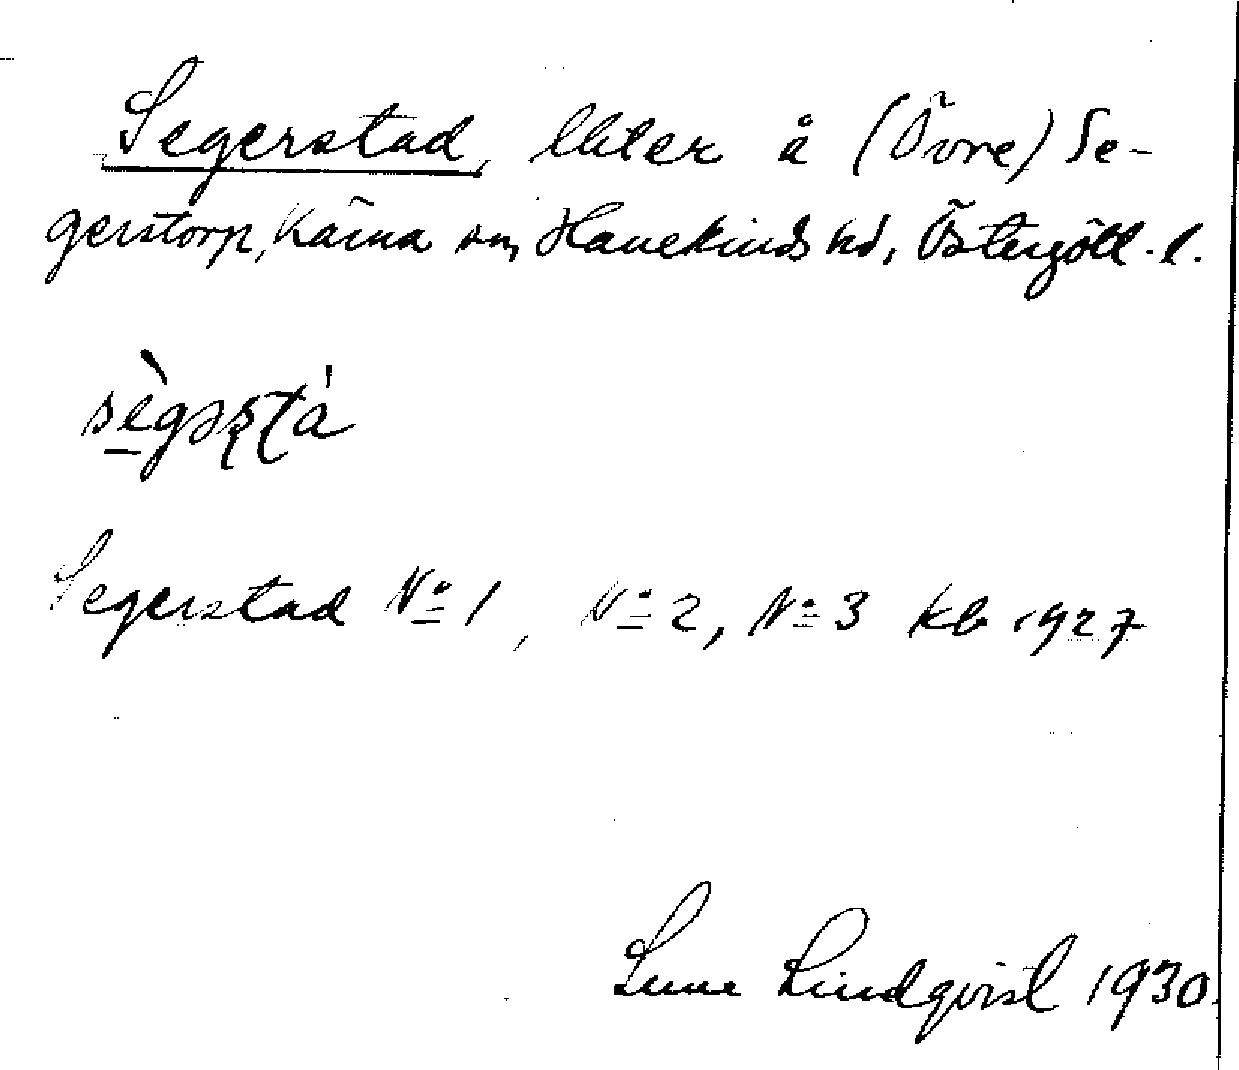 Segerstad, lhter å (Övre) Se-
gerstorp, Kärna sn, Hanekinds hd, Östergötl. l.
sègəsta
Segerstad No 1, No 2, No 3 kb 1927
Sune Lindqvist 1930.